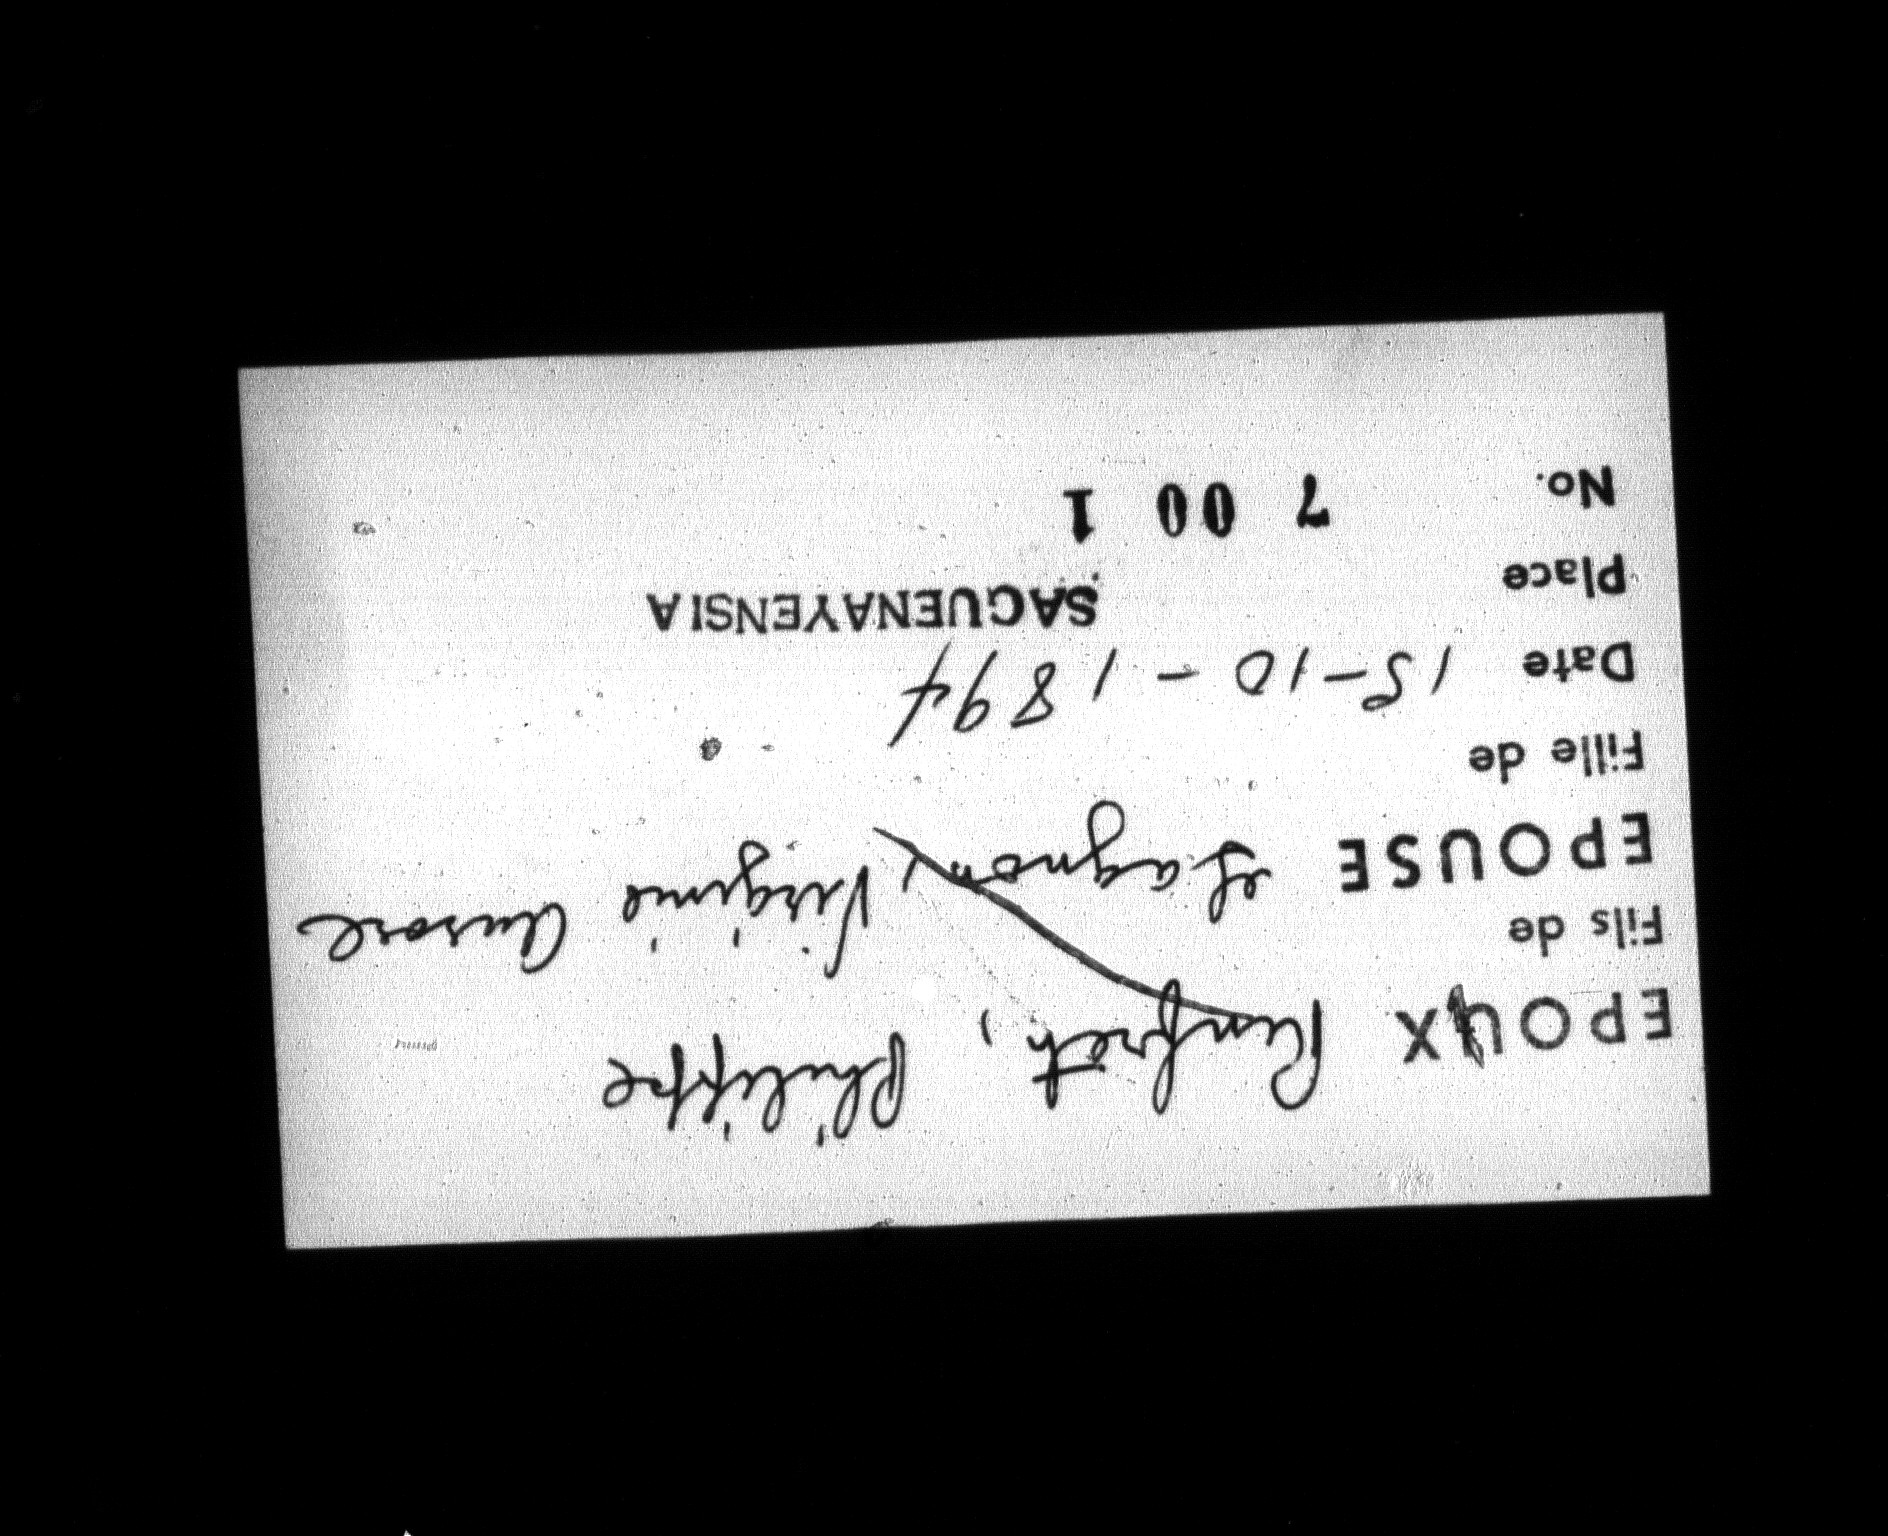 EPOUX Rinfret, Philippe
Fils de
EPOUSE et Gagnon, Virginie Aurore
Fille de
Date 15-10-1894
Place SAGUENAYENSIA
No. 7 00 1